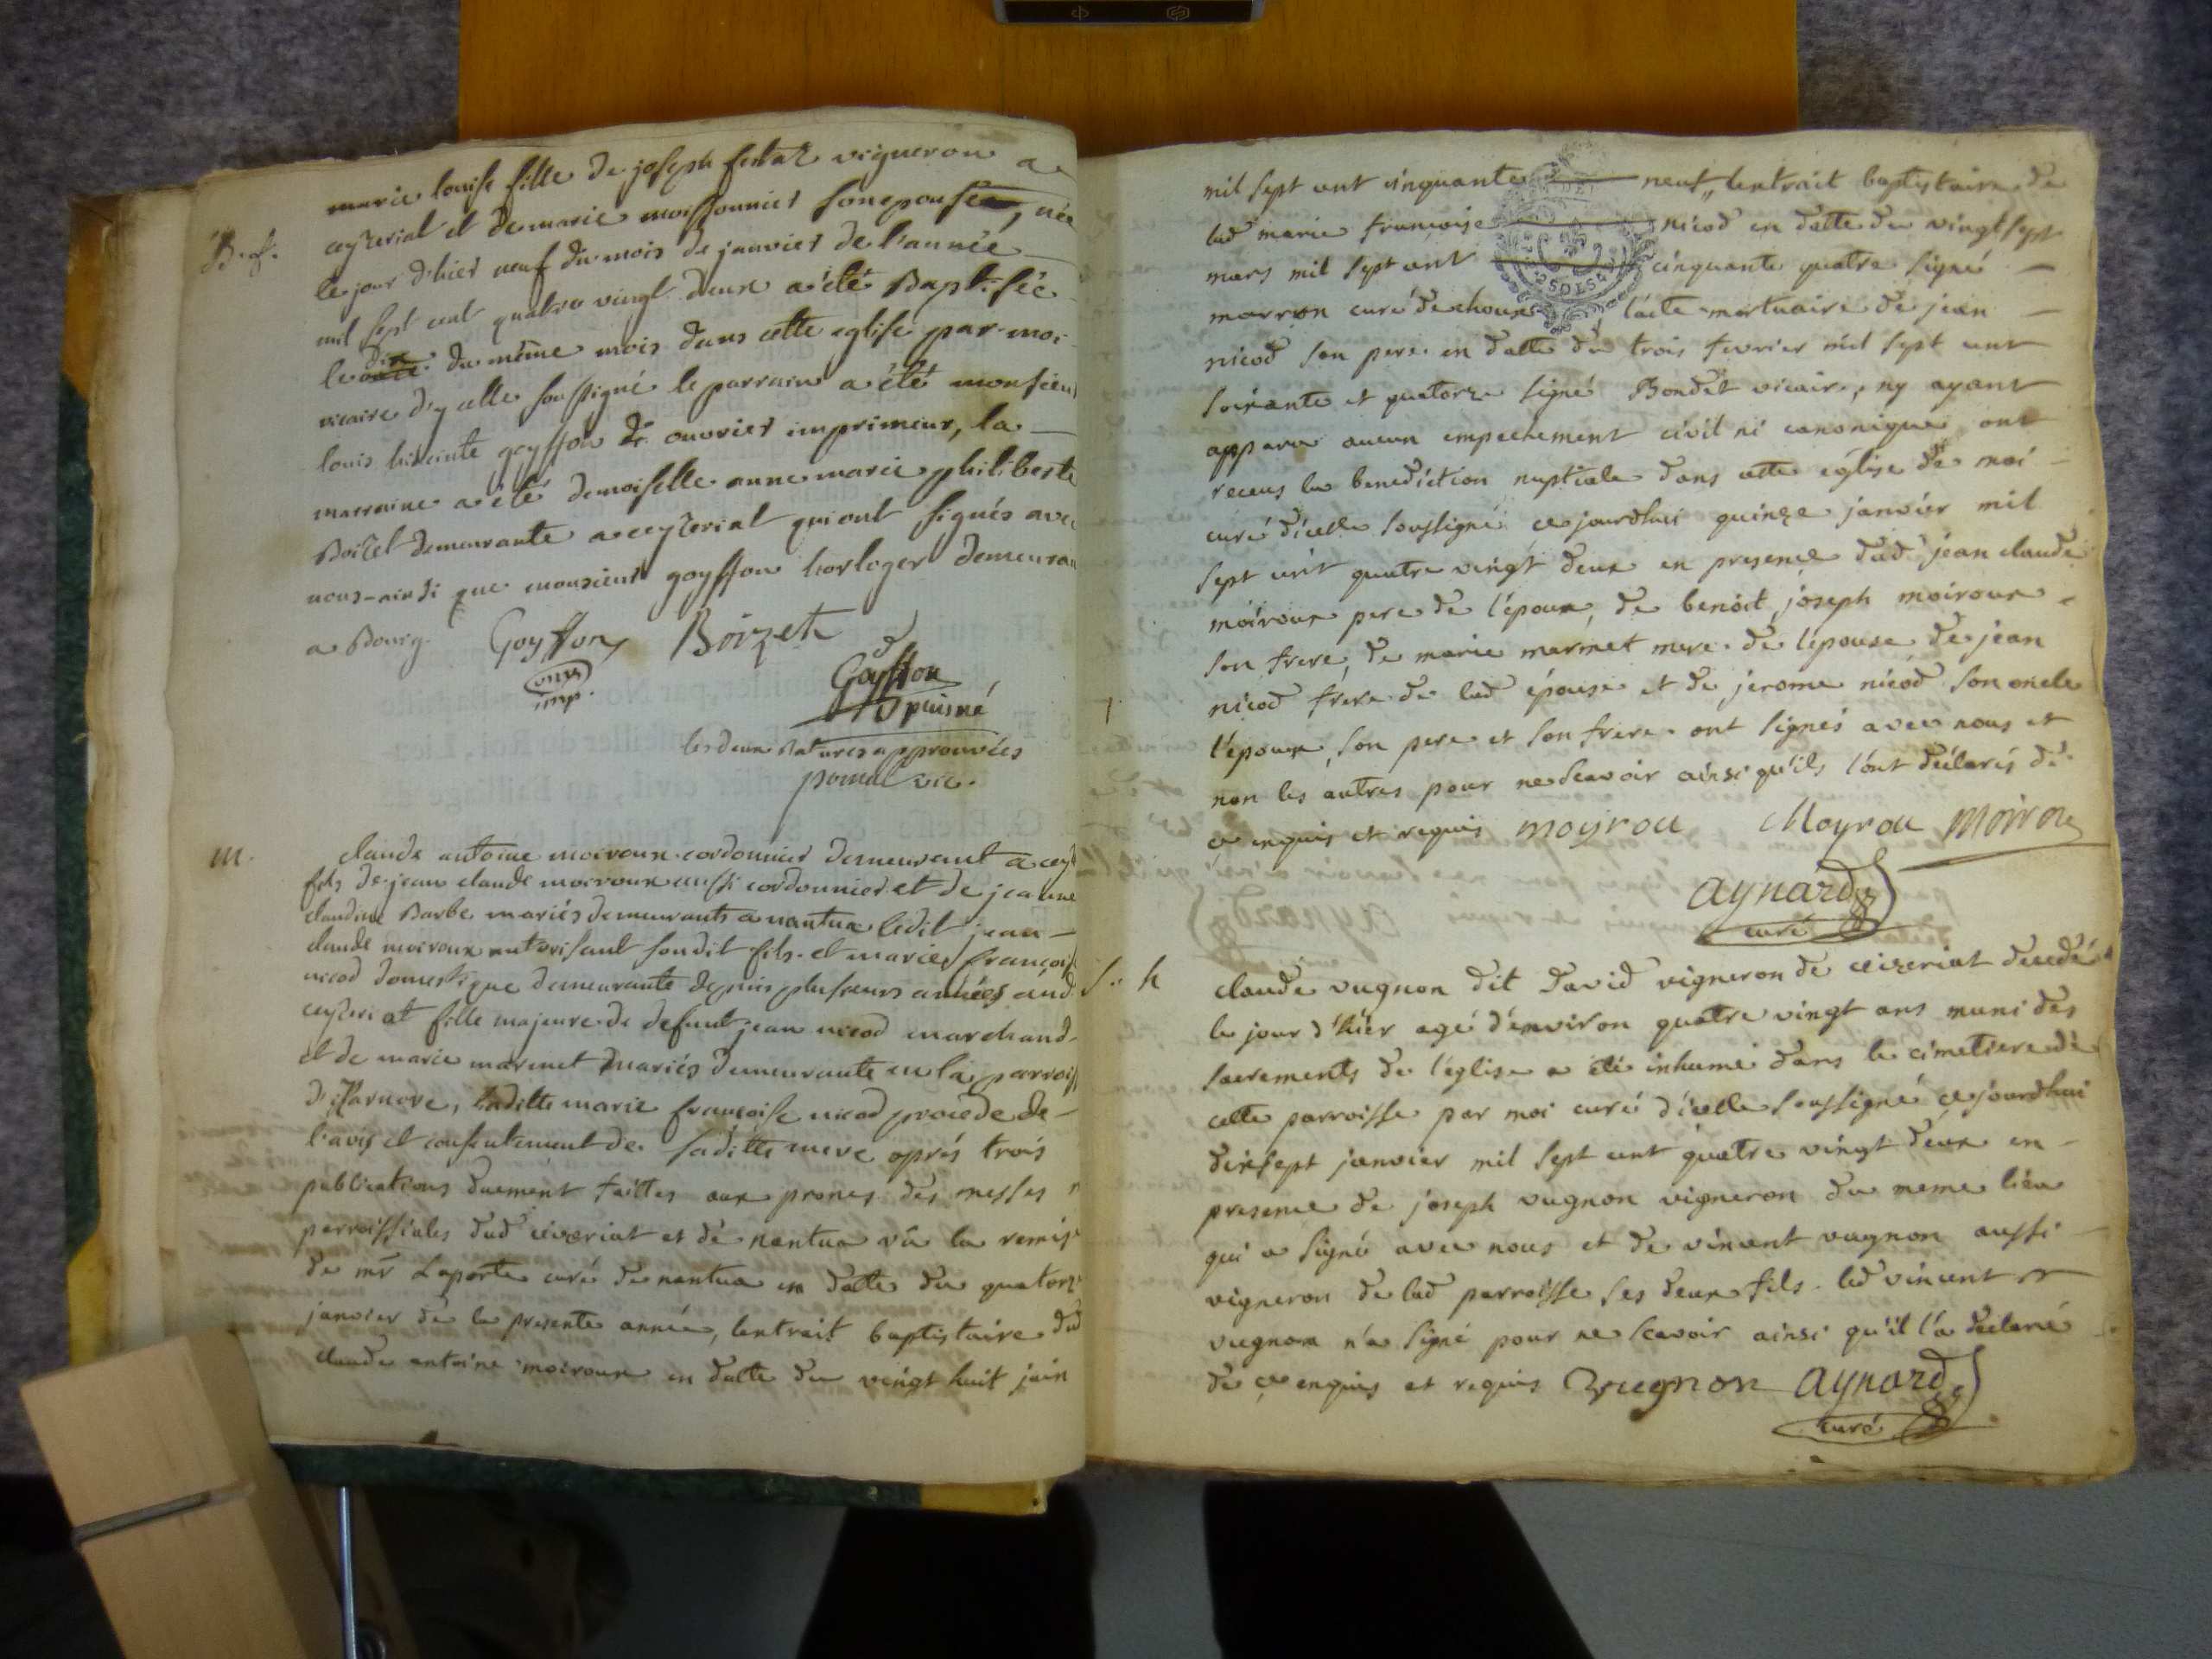 B. f.
marie louise fille de joseph feata vigneron a
ceyzeriat et de marie moissonnier son epouse, née
le jour d'hier neuf du mois de janvier de l'année
mil sept cent quatre vingt deux a été Baptisée
le dix du même mois dans cette eglise par moi
vicaire d'y celle soussigné le parrain a été monsieur
louis hiacinte goyffon ouvrier imprimeur, la
marraine a été demoiselle anne marie philiberte
Boizet demeurante a ceyzeriat qui ont signés avec
nous ainsi que monsieur goyffon horloger demeuran
a Bourg. Goyffon Boizet
ouvr imp. Goyffon puisné
les deux ratures approuvées
vic.
m.
claude antoine moiroux cordonnier demeurant a cey
fils de jean claude moiroux aussi cordonnier et de jeanne
claudine Barbe mariés demeurants a nantua ledit jean
claude moiroux autorisant son dit fils et marie françois
nicod domestique demeurante depuis plusieurs années aud
ceyzeriat fille majeure de defunt jean nicod marchand
et de marie marmet mariés demeurante en la parroiss
d'izarnore, laditte marie françoise nicod procede de
l'avis et consentement de saditte mere après trois
publications duement faittes aux prones des messes
parroissiales dud ceizeriat et de nantua vû la remise
de mr Laporte curé de nantua en datte du quatorz
janvier de la presente année, lextrait baptistaire dud
claude antoine moiroux en datte du vingt huit juin
mil sept cent cinquante neuf, lextrait baptistaire de
lad marie francoise nicod en datte du vingt sept
mars mil sept cent cinquante quatre signé
marron curé de choux, l'acte mortuaire de jean
nicod son pere en datte du trois fevrier mil sept cent
soixante et quatorze signé Bondet vicaire, ny ayant
apparu aucun empechement civil ni canonique ont
receus la benediction nuptiale dans cette eglise de moi
curé d'icelle soussigné ce jourdhui quinze janvier mil
sept cent quatre vingt deux en presence dud jean claude
moiroux pere de l'époux, de benoit joseph moiroux
son frere, de marie marmet mere de l'épouse de jean
nicod frere de lad épouse et de jerome nicod son oncle
l'époux, son pere et son frere ont signés avec nous et
non les autres pour ne scavoir ainsi qu'ils l'ont déclarés de
ce enquis et requis moyrou Moyrou moirou
aynard
curé
S. h
claude vugnon dit david vigneron de ceizeriat decedé
le jour d'hier agé d'environ quatre vingt ans muni des
sacrements de l'église a été inhumé dans le cimetiere de
cette parroisse par moi curé d'icelle soussigné ce jourdhui
dixsept janvier mil sept cent quatre vingt deux en
presence de joseph vugnon vigneron du meme lieu
qui a signé avec nous et de vincent vugnon aussi
vigneron de lad parroisse ses deux fils. led vincent
vugnon n'a signé pour ne scavoir ainsi qu'il l'a declaré
de ce enquis et requis Vugnon aynard
curé